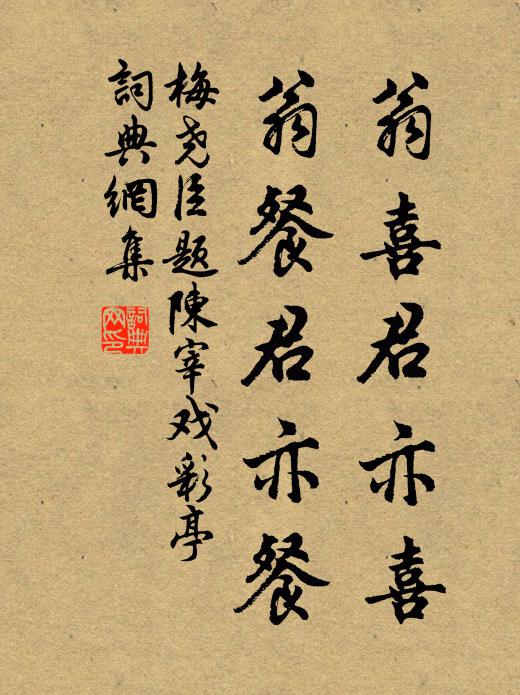 翁喜君亦喜
翁餐君亦餐
梅尧臣题陳宰戏彩亭
詞典網集
詞典网印